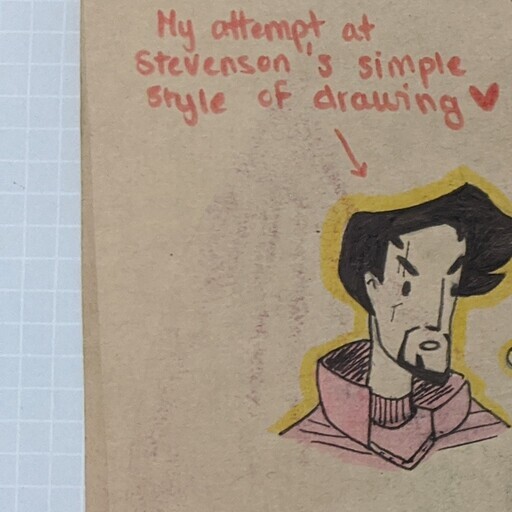 My attempt at
Stevenson's simple
style of drawing